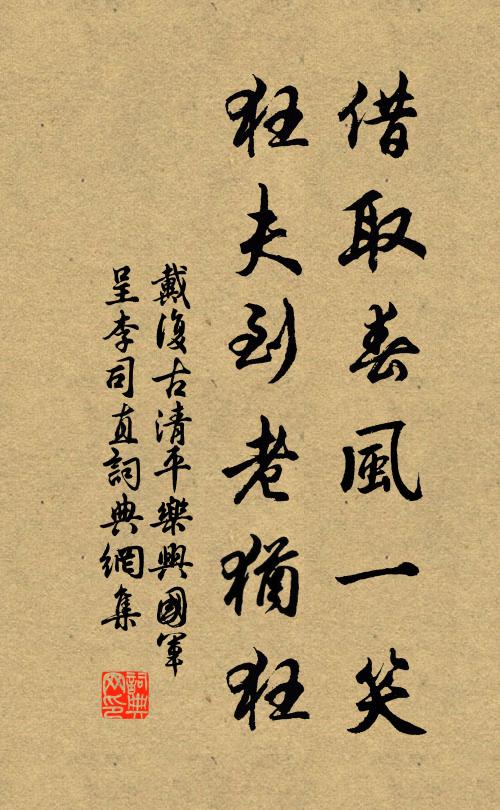 借取春風一笑
狂夫到老猶狂
戴復古清平樂興國軍
呈李司直詞典網集
詞典
網印